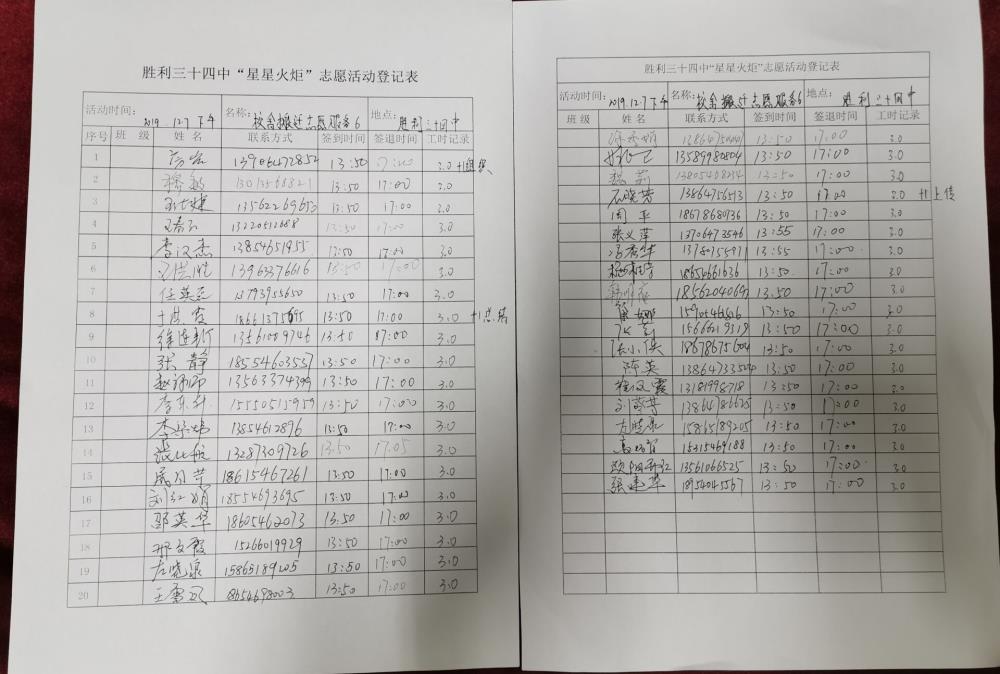 胜利三十四中“星星火炬”志愿活动登记表
活动时间: 2019.12.7下午 名称: 校舍搬迁志愿服务6 地点: 胜利三十四中
序号 班 级 姓 名 联系方式 签到时间 签退时间 工时记录
1 13:50 17:00 3.0 +1组织
2 13:50 17:00 3.0
3 13:50 17:00 3.0
4 13220512688 13:50 17:00 3.0
5 李汉杰 13854651955 13:50 17:00 3.0
6 13963376616 13:50 17:00 3.0
7 任英杰 13793955650 13:50 17:00 3.0
8 于洪霞 18661375695 13:50 17:00 3.0 +1总结
9 13561009746 13:50 17:00 3.0
10 张静 18554603557 13:50 17:00 3.0
11 13563374399 13:50 17:00 3.0
12 李东升 15550515959 13:50 17:00 3.0
13 13854612896 13:50 17:00 3.0
14 13287309726 13:50 17:05 3.0
15 18615467261 13:50 17:00 3.0
16 刘红娟 18554693695 13:50 17:00 3.0
17 邵英华 18605462073 13:50 17:00 3.0
18 邢文霞 15266019929 13:50 17:00 3.0
19 左晓泉 15865189205 13:50 17:00 3.0
20 13:50 17:00 3.0
胜利三十四中“星星火炬”志愿活动登记表
活动时间: 2019.12.7下午 名称: 校舍搬迁志愿服务6 地点: 胜利三十四中
班 级 姓 名 联系方式 签到时间 签退时间 工时记录
13:50 17:00 3.0
13589980804 13:50 17:00 3.0
魏莉 13805468234 13:50 17:00 3.0
石晓芳 13864756513 13:50 17:00 3.0 +1上传
周平 18678680736 13:50 17:00 3.0
张义萍 13706473546 13:55 17:00 3.0
冯秀华 13780755971 13:55 17:00 3.0
18654661636 13:50 17:00 3.0
13:50 17:00 3.0
13:50 17:00 3.0
15666219319 13:50 17:00 3.0
张小侠 18678675604 13:50 17:00 3.0
陈英 13864733504 13:50 17:00 3.0
程汉霞 13181998718 13:50 17:00 3.0
13864786625 13:50 17:00 3.0
15865189205 13:50 17:00 3.0
15315469188 13:50 17:00 3.0
13561066525 13:50 17:00 3.0
张建华 18954045567 13:50 17:00 3.0